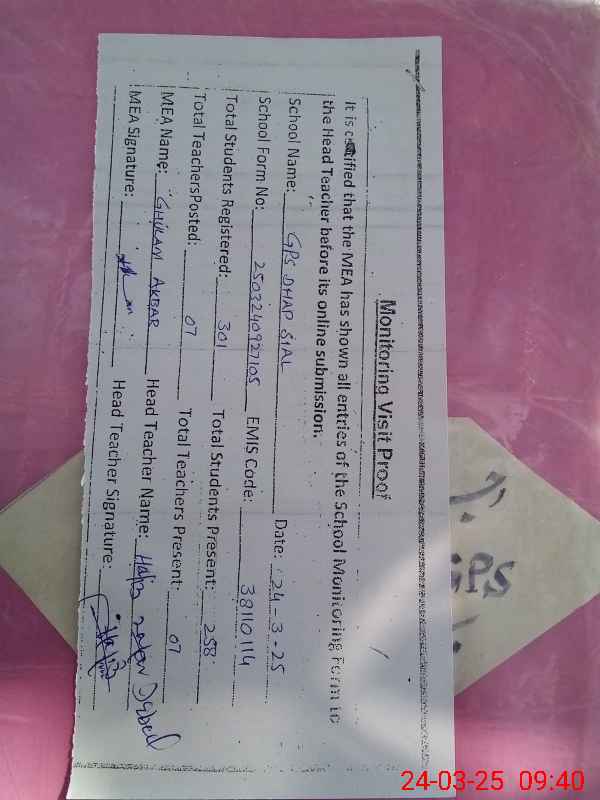 Monitoring Visit Proof
It is certified that the MEA has shown all entries of the School Monitoring Form to
the Head Teacher before its online submission.
School Name: GPS DHAP SIAL Date: 24-3-25
School Form No: 2503240927105 EMIS Code: 38110114
Total Students Registered: 301 Total Students Present: 258
Total TeachersPosted: 07 Total Teachers Present: 07
MEA Name: GHULAM AKBAR Head Teacher Name: Hafiz
MEA Signature: Head Teacher Signature:
GPS
24-03-25 09:40